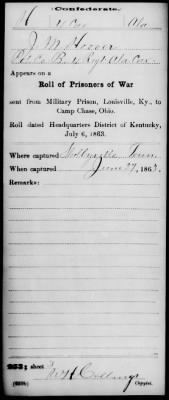 Confederate.
H 4 Cav. Ala
J M Hoover
Pvt Co B, 4 Regt Ala Cav.
Appears on a
Roll of Prisoners of War
sent from Military Prison, Louisville, Ky., to
Camp Chase, Ohio.
Roll dated Headquarters District of Kentucky,
July 6, 1863.
Where captured Shelbyville Tenn
When captured June 27, 1863.
Remarks:
sheet
Copyist.